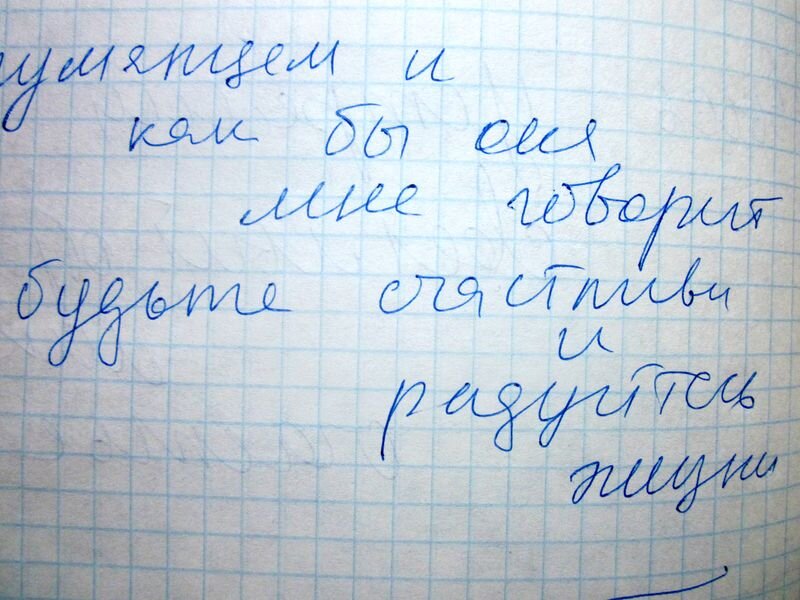 румянцем и
как бы она
мне говорит
будьте счастливы
и
радуйтесь
жизни